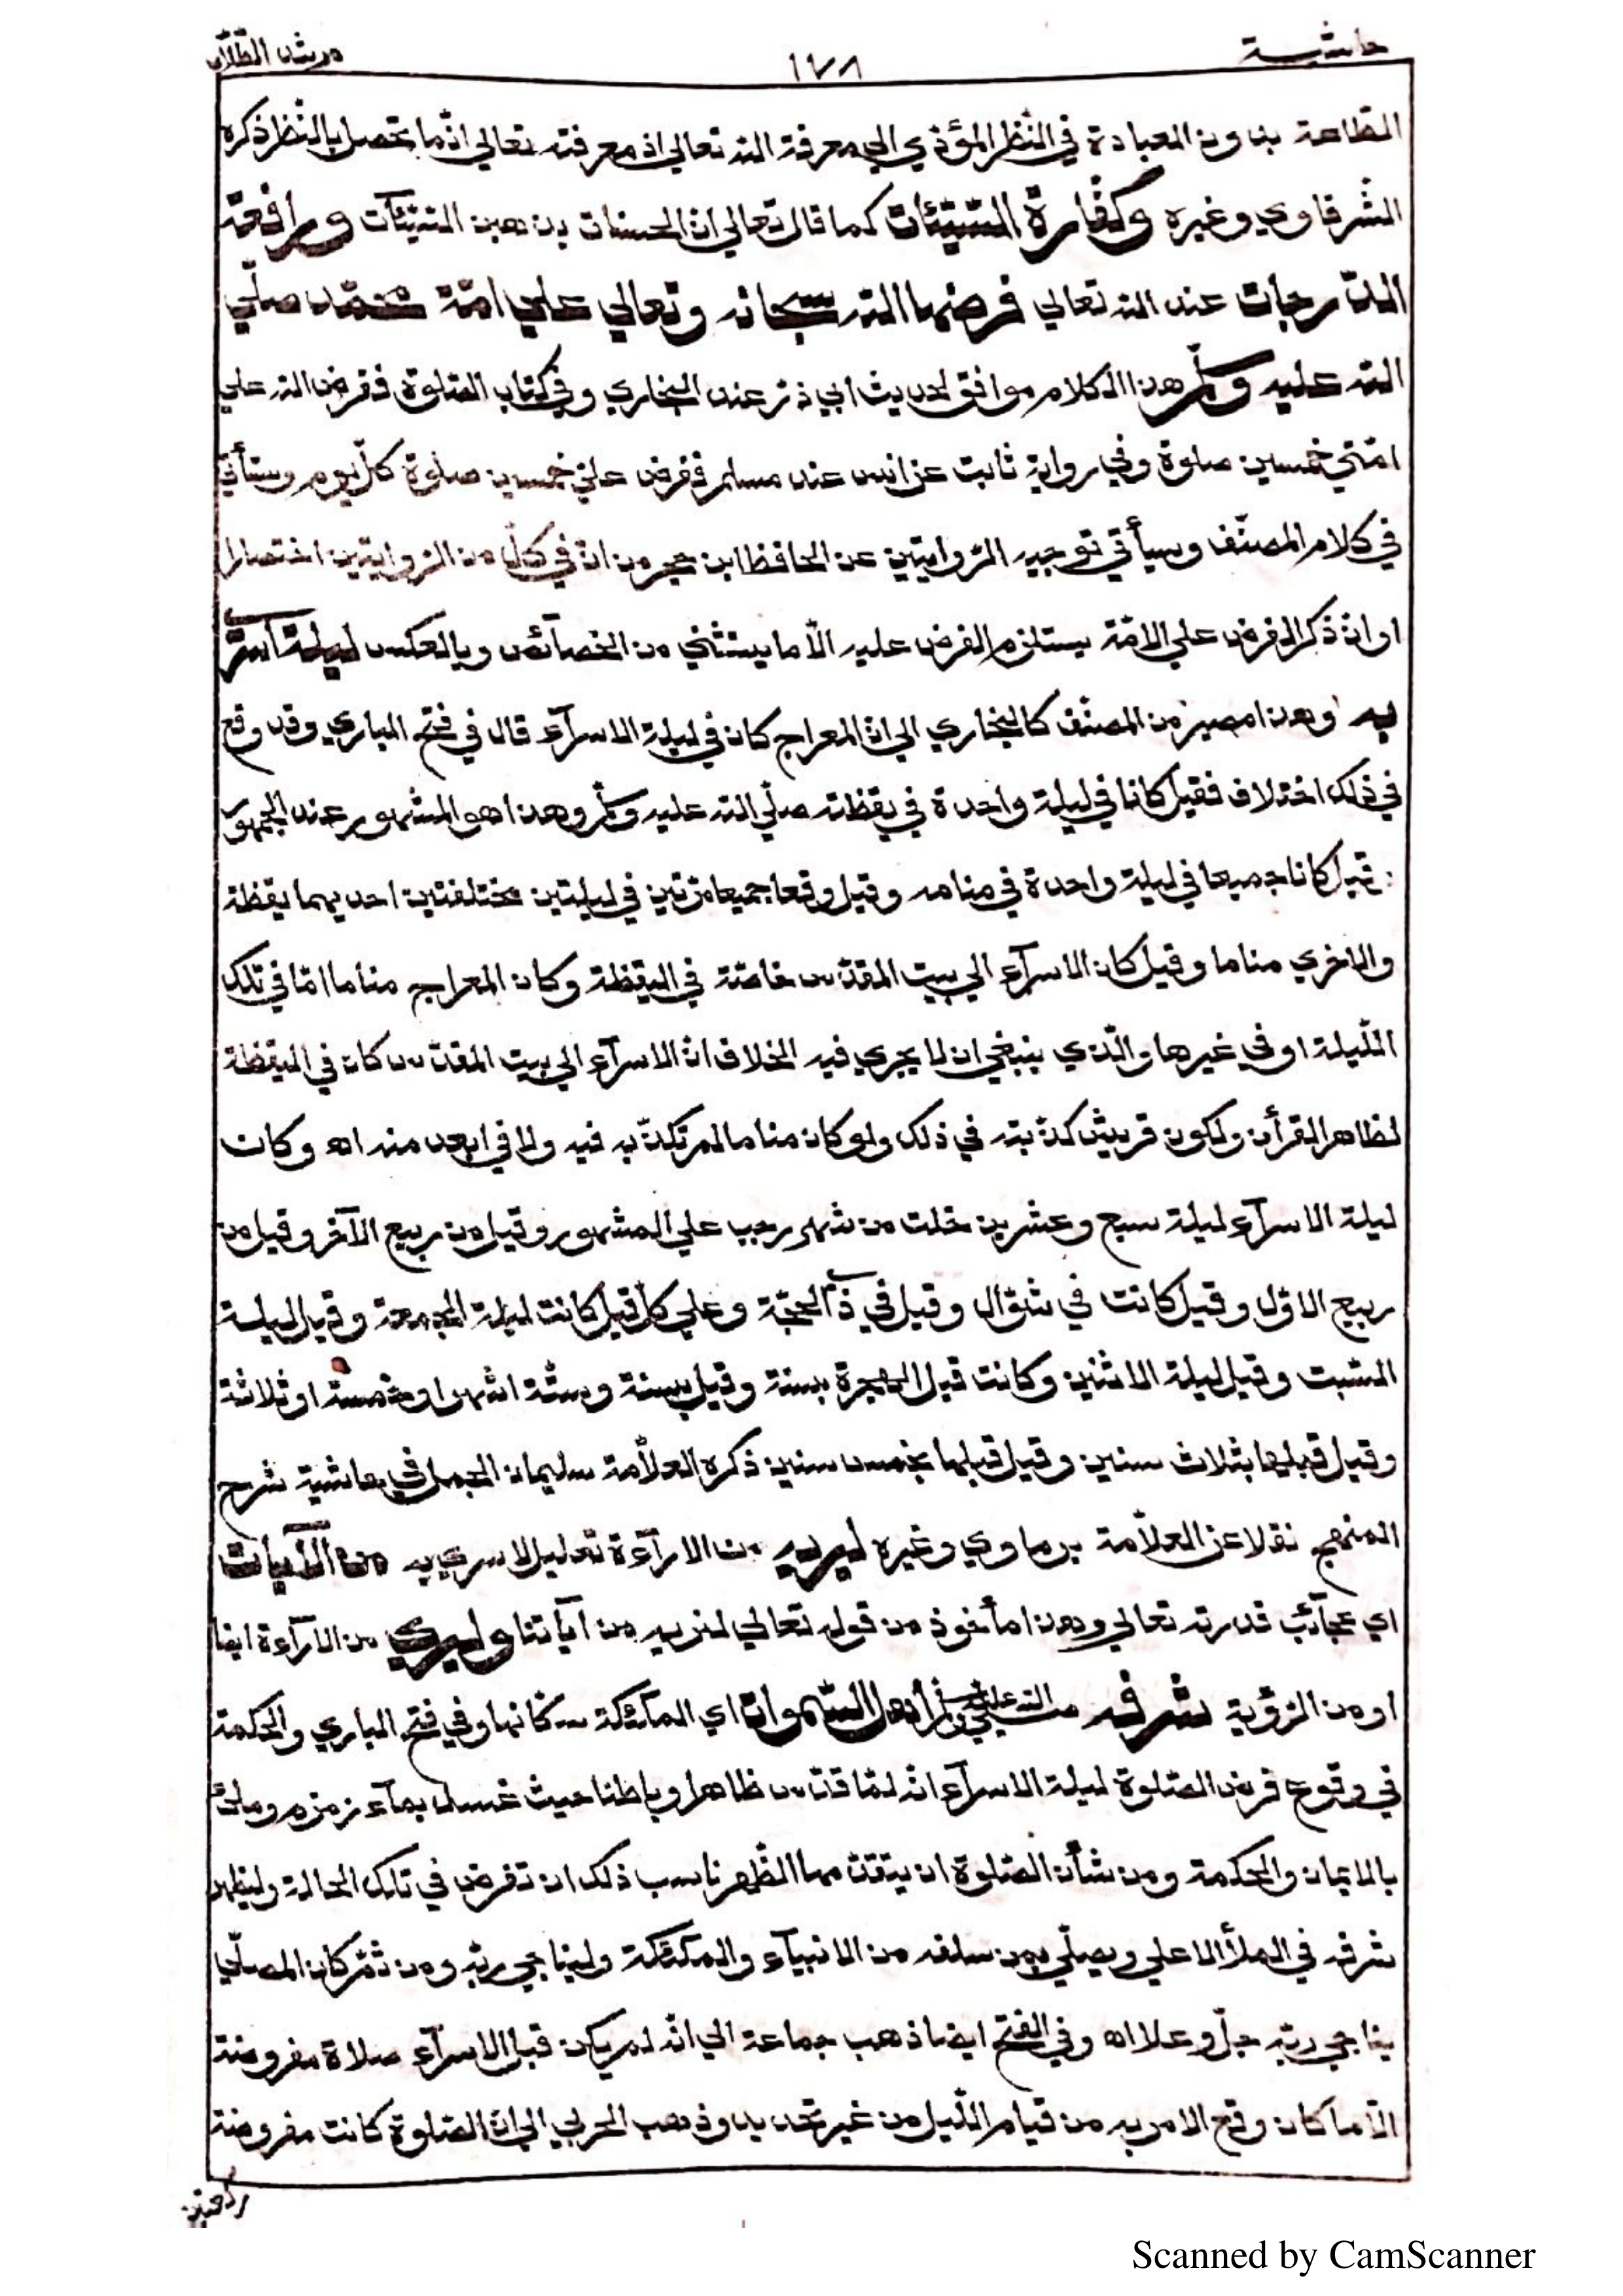 حاشية ١٧٨ مرشد الطلاب
الطاعة بدون العبادة في النظر المؤدي الي معرفة الله تعالي اذ معرفته تعالي انّما تحصل بالنظر ذكره
الشرقاوي وغيره وكفّارة السّيّئات كما قال تعالي انّ الحسنات يذهبن السّيّئآت ورافعة
الدّرجات عند الله تعالي فرضها الله سبحانه وتعالي علي امّة محمّد صلّي
الله عليه وسلّم هذا الكلام موافق لحديث ابي ذرّ عند البخاري وفي كتاب الصّلوة ففرض الله علي
امّتي خمسين صلوة وفي رواية ثابت عن انس عند مسلم ففرض عليّ خمسين صلوة كلّ يوم وستأتي
في كلام المصنّف وسيأتي توجيه الرّوايتين عن الحافظ ابن حجر من انّ في كلّ من الرّوايتين اختصارا
او انّ ذكر الفرض علي الامّة يستلزم الفرض عليه الّا ما يستثني من الخصآئص وبالعكس ليلة اسري
به وهذا مصير من المصنّف كالبخاري الي انّ المعراج كان في ليلة الاسرآء قال في فتح الباري وقد وقع
في ذلك اختلاف فقيل كانا في ليلة واحدة في يقظته صلّي الله عليه وسلّم وهذا هو المشهور عند الجمهور
قيل كانا جميعا في ليلة واحدة في منامه وقيل وقعا جميعا مرّتين في ليلتين مختلفتين احديهما يقظة
والاخري مناما وقيل كان الاسرآء الي بيت المقدّس خاصّة في اليقظة وكان المعراج مناما امّا في تلك
اللّيلة او في غيرها والّذي ينبغي ان لا يجري فيه الخلاف انّ الاسرآء الي بيت المقدّس كان في اليقظة
لظاهر القرأن ولكون قريش كذّبته في ذلك ولو كان مناما لم تكذّبه فيه ولا في ابعد منه اه وكانت
ليلة الاسرآء ليلة سبع وعشرين خلت من شهر رجب علي المشهور وقيل من ربيع الآخر وقيل من
ربيع الاوّل وقيل كانت في شوّال وقيل في ذي الحجّة وعلي كلّ قيل كانت ليلة الجمعة وقيل ليلة
السّبت وقيل ليلة الاثنين وكانت قبل الهجرة بسنة وقيل بسنة وستّة اشهر او خمسة او ثلاثة
وقيل قبلها بثلاث سنين وقيل قبلها بخمس سنين ذكره العلاّمة سليمان الجمل في حاشية شرح
المنهج نقلا عن العلاّمة برماوي وغيره ليريه من الارآءة تعليل لاسري به من الآيات
اي عجآئب قدرته تعالي وهذا مأخوذ من قوله تعالي لنريه من آياتنا وليري من الارآءة ايضا
او من الرّؤية شرفه صلي الله عليه وسلم اهل السّموات اي الملآئكة سكّانها وفي فتح الباري والحكمة
في وقوع فرض الصّلوة ليلة الاسرآء انّه لمّا قدّس ظاهرا وباطنا حيث غسل بمآء زمزم وملئ
بالايمان والحكمة ومن شأن الصّلوة ان يتقدّمها الطّهر ناسب ذلك ان تفرض في تلك الحالة وليظهر
شرفه في الملأ الاعلي ويصلّي بمن سلفه من الانبيآء والملئكة وليناجي ربّه ومن ثمّ كان المصلّي
يناجي ربّه جلّ وعلا اه وفي الفتح ايضا ذهب جماعة الي انّه لم يكن قبل الاسرآء صلاة مفروضة
الّا ما كان وقع الامر به من قيام اللّيل من غير تحديد وذهب الحربي الي انّ الصّلوة كانت مفروضة
ركعتين
Scanned by CamScanner